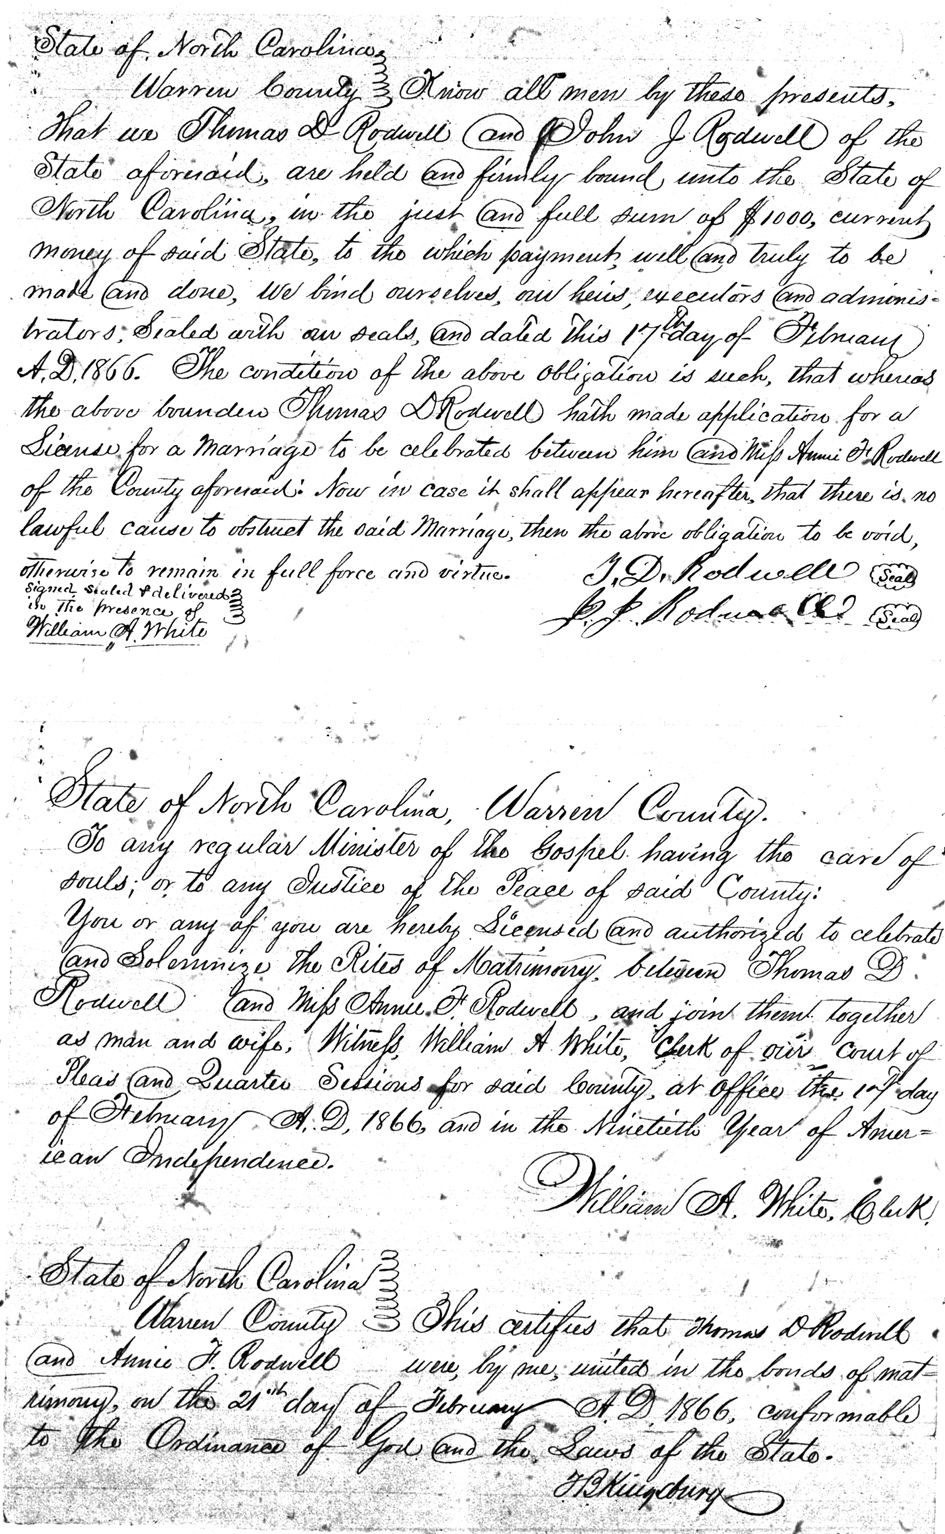 State of North Carolina
Warren County Know all men by these presents,
that we Thomas D Rodwell and John J Rodwell of the
State aforesaid, are held and firmly bound unto the State of
North Carolina, in the just and full sum of $1000, current
money of said State, to the which payment, well and truly to be
made and done, we bind ourselves, our heirs, executors and adminis=
trators, Sealed with our seals, and dated this 17th day of February
A.D. 1866. The condition of the above obligation is such, that whereas
the above bounden Thomas D Rodwell hath made application for a
License for a Marriage to be celebrated between him and Miss Annie F. Rodwell
of the County aforesaid: Now in case it shall appear hereafter, that there is no
lawful cause to obstruct the said Marriage, then the above obligation to be void,
otherwise to remain in full force and virtue. T. D. Rodwell Seal
Signed sealed & delivered
in the presence of J. J. Rodwell Seal
William A. White
State of North Carolina, Warren County.
To any regular Minister of the Gospel having the care of
souls; or to any Justice of the Peace of said County:
You or any of you are hereby Licensed and authorized to celebrate
and Solemnize the Rites of Matrimony, between Thomas D.
Rodwell and Miss Annie F. Rodwell, and join them together
as man and wife. Witness, William A White, Clerk of our Court of
Pleas and Quarter Sessions for said County, at office the 17th day
of February A.D. 1866, and in the Ninetieth Year of Amer=
ican Independence.
William A. White, Clerk.
State of North Carolina
Warren County This certifies that Thomas D Rodwell
and Annie F. Rodwell were, by me, united in the bonds of mat=
rimony, on the 21st day of February A.D. 1866, conformable
to the Ordinance of God and the Laws of the State.
T B Kingsbury